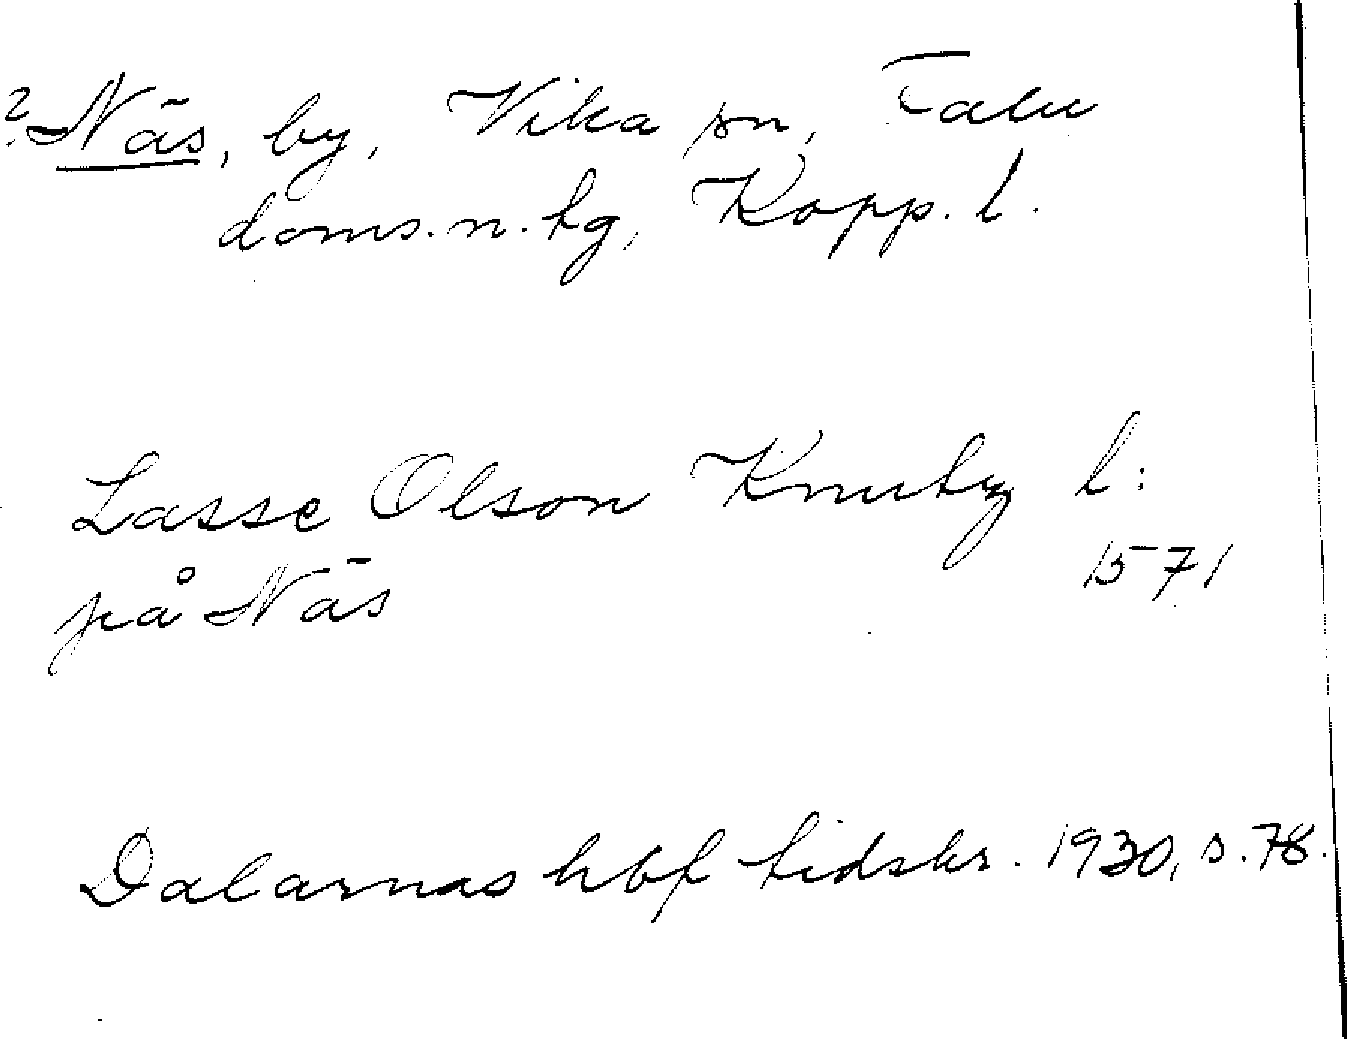 ? Näs, by, Vika sn, Falu
doms.n.tg, Kopp. l.
Lasse Olson Knuty l:
på Näs 1571
Dalarnas hbf tidskr. 1930, s. 78.